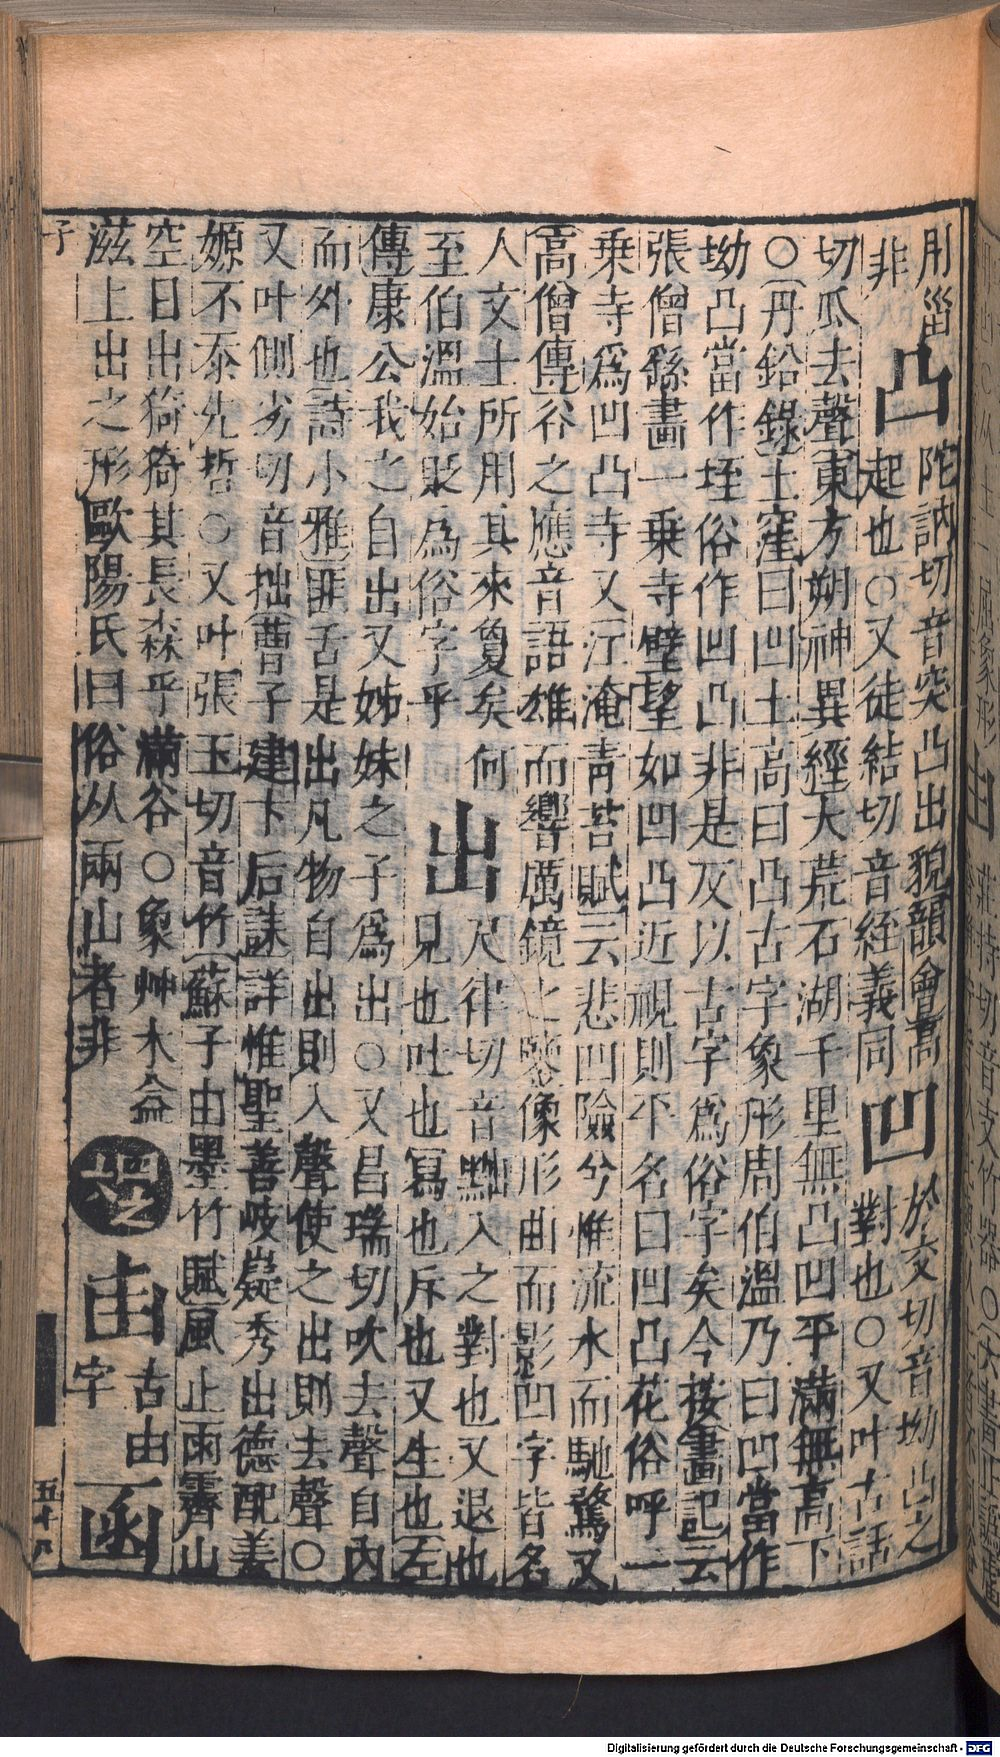 用甾凸陀訥切音突凸出貌韻會髙
非起也○又徒結切音絰義同凹於交切音坳凸之
對也○又叶古話
切瓜去聲東方朔神異經大荒石湖千里無凸凹平滿無高下
○丹鉛錄土窪曰凹土高曰凸古字象形周伯溫乃曰凹當作
坳凸當作垤俗作凹凸非是反以古字爲俗字矣今按畫記云
張僧繇畫一乗寺壁望如凹凸近視則平名曰凹凸花俗呼一
乗寺爲凹凸寺又江淹青苔賦云悲凹險兮惟流水而馳騖又
高僧傳谷之應音語雄而響厲鏡之鑒像形曲而影凹字皆名
人文士所用其來夐矣何
至伯溫始貶爲俗字乎
出尺律切音黜入之對也又退也
見也吐也寫也斥也又生也左
傳康公我之自出又姊妹之子爲出○又昌瑞切吹去聲自內
而外也詩小雅匪舌是出凡物自出則入聲使之出則去聲○
又叶側劣切音拙曹子建卞后誄詳惟聖善岐嶷秀出德配姜
嫄不忝先哲○又叶張玉切音竹蘇子由墨竹賦風止雨霽山
空日出猗猗其長森乎滿谷○象艸木益
滋上出之形歐陽氏曰俗从兩山者非
由古由
字
凾
子
五十八
Digitalisierung gefördert durch die Deutsche Forschungsgemeinschaft - DFG